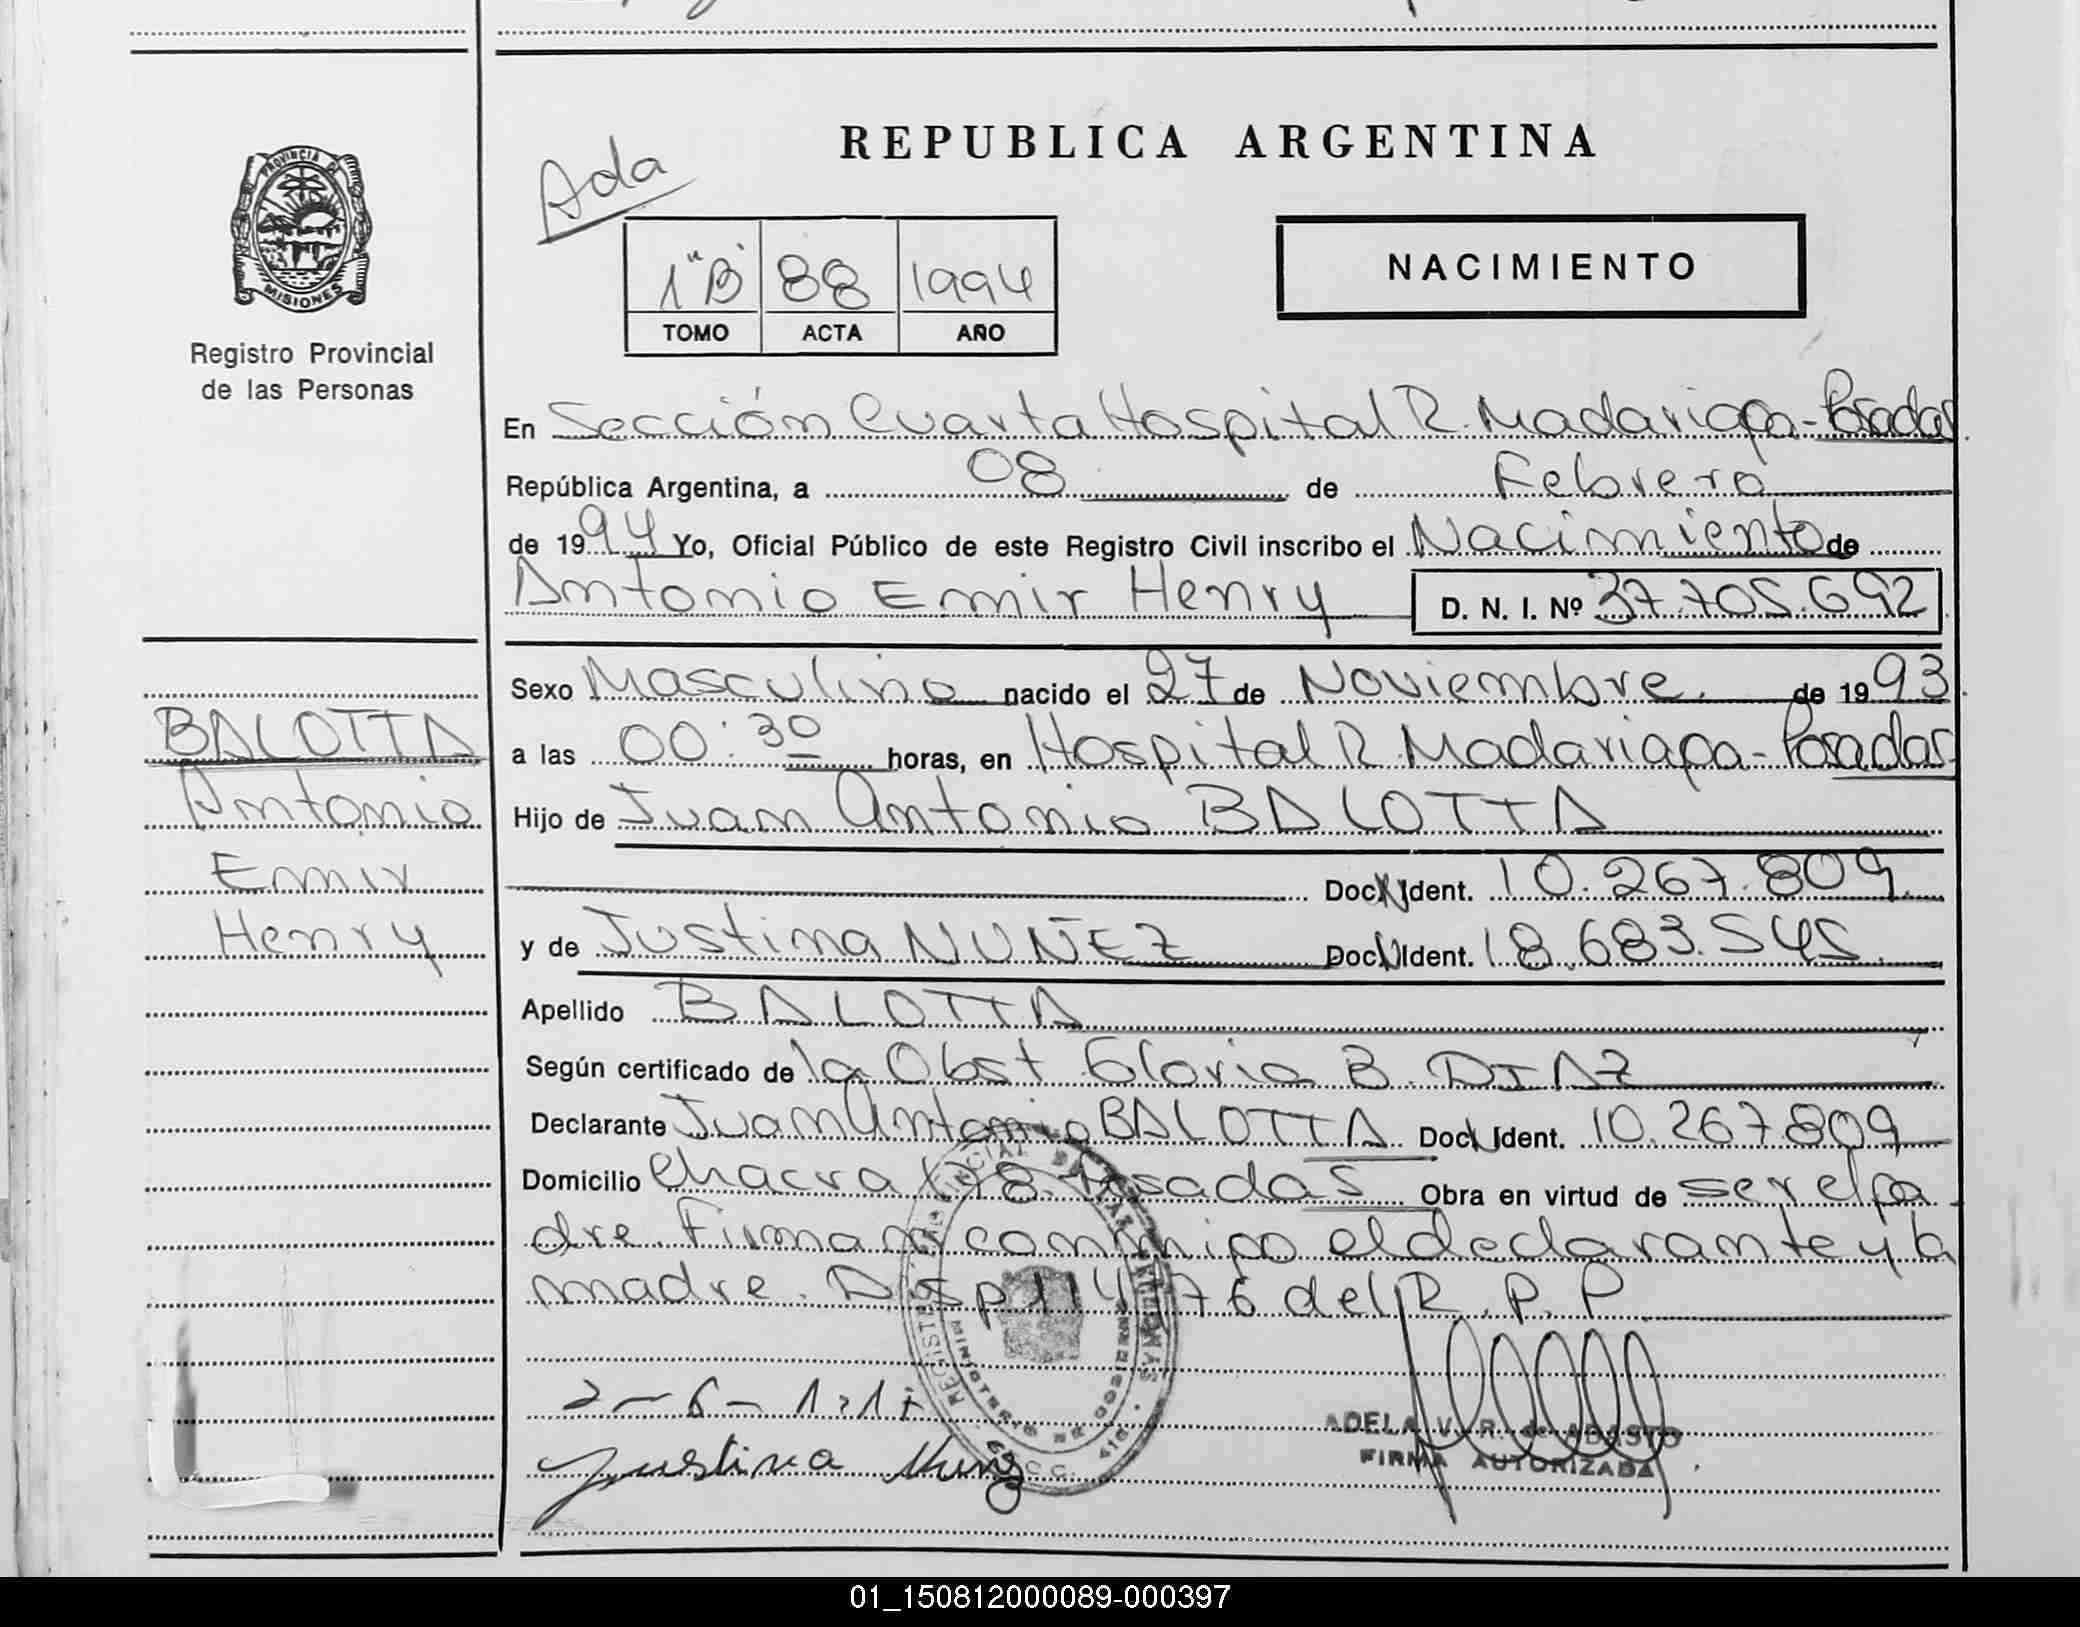 PROVINCIA DE
MISIONES
Registro Provincial
de las Personas
BALOTTA
Antonio
Emir
Henry
REPUBLICA ARGENTINA
Ada
1"B" 88 1994
TOMO ACTA AÑO
NACIMIENTO
En Sección Cuarta Hospital R. Madariaga - Posadas
República Argentina, a 08 de Febrero
de 1994 Yo, Oficial Público de este Registro Civil inscribo el Nacimiento de
Antonio Emir Henry D. N. I. Nº 37.705.692
Sexo Masculino nacido el 27 de Noviembre. de 1993
a las 00:30 horas, en Hospital R. Madariaga - Posadas
Hijo de Juan Antonio BALOTTA
Doc. Ident. 10.267.809
y de Justina NUÑEZ Doc. Ident. 18.683.545
Apellido BALOTTA
Según certificado de la Obst Gloria B. DIAZ
Declarante Juan Antonio BALOTTA Doc. Ident. 10.267.809
Domicilio Chacra Posadas Obra en virtud de ser el pa-
dre. Firman conmigo el declarante y la
madre. Disp 114/76 del R. P. P
ADELA V. R. de ABASTO
FIRMA AUTORIZADA
Justina
MINISTERIO DE GOBIERNO
01_150812000089-000397